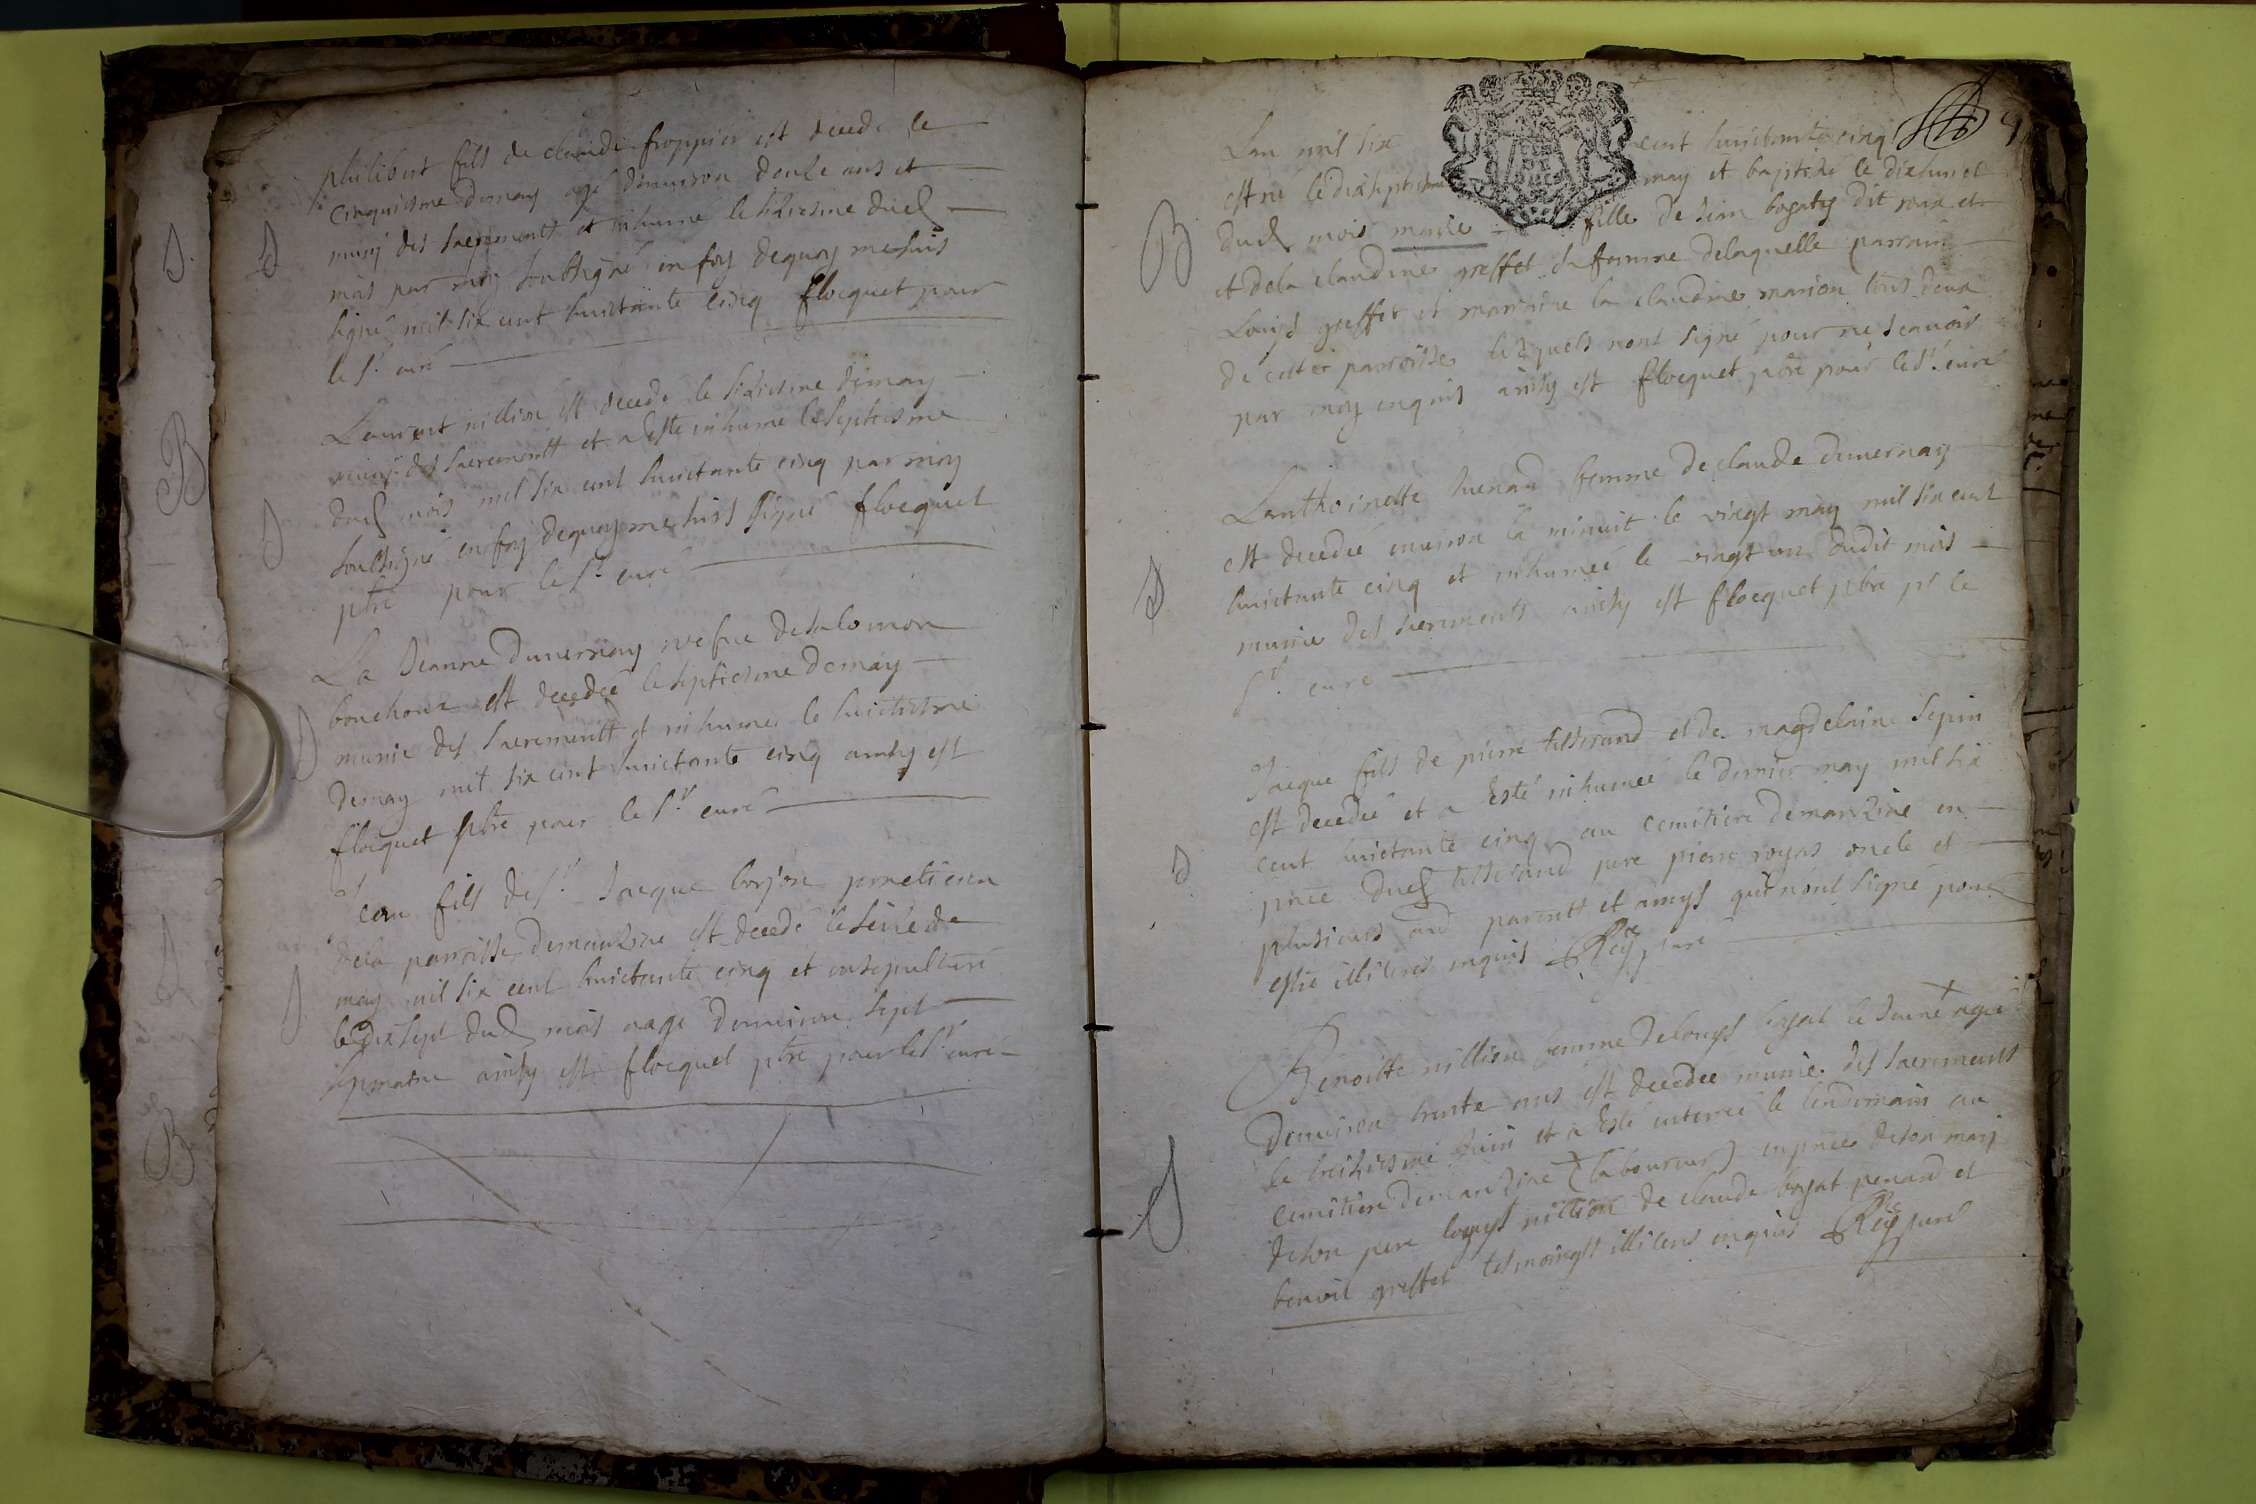 philibert fils de claude froppier est decedé le
cinquiesme demay agé denuiron douze ans et
muny des sacrementt et inhumé le sixiesme dud
mois par moy soubsigné en foy dequoy me suis
signé mil six cent huictante cinq flocquet pour
le Sr. curé
D
Laurent nillion est decedé le sixiesme demay
muny des sacrementt et a esté inhumé le septiesme
dud mois mil six cent huictante cinq par moy
soubsigné en foy dequoy me suis signé flocquet
ptre pour le Sr. curé
D
La Jeanne duuernay vefue de salomon
bouchoux est decedée le septiesme demay
munie des sacrementt et inhumée le huictiesme
demay mil six cent huictante cinq ainsy est
flocquet ptre pour le Sr. curé
D
Jean fils de Sr. Jacque borjon praticien
dela parroisse demanziac est decedé le seize de
may mil six cent huictante cinq et ensepulturé
le dix sept dud mois aagé denuiron sept
sepmaine ainsy est flocquet ptre pour le Sr. curé
D
Lan mil six cent huictante cinq
est né le dixseptiesme may et baptisé le dixhuict
dud mois marie fille de Jean bogatz dit roux et
et dela claudine greffet sa femme delaquelle parrain
Louys greffet et marraine la claudine marion tous deux
de cette parroisse lesquels nont signé pour ne scauoir
par moy enquis ainsy est flocquet ptre pour le Sr. curé
B
Lanthoinette femme de claude duuernay
est decedée enuiron la minuit le vingt may mil six cent
huictante cinq et inhumée le vingt un dudit mois
munie des sacrements ainsy est flocquet pbre pr le
Sr. curé
D
Jacque fils de pierre tisserand et de magdelaine Sepin
est decedé et a esté inhumeé le dernier may mil six
cent huictante cinq au cemitiere demanziac en
pnce dud tisserand pere pierre royas oncle et
plusieurs parentt et amys qui nont signé pour
estre illiteres enquis
D
Benoitte nillion femme delouys bogat le Jeune agée
denuiron trente ans est decedée munie des sacrements
le treiziesme Juin et a esté enterreé le lendemain au
cemitiere demanziac (laboureur) en pnce deson mary
deson pere louys nillion de claude bogat penard et
benoit greffet tesmoings illiteres enquis